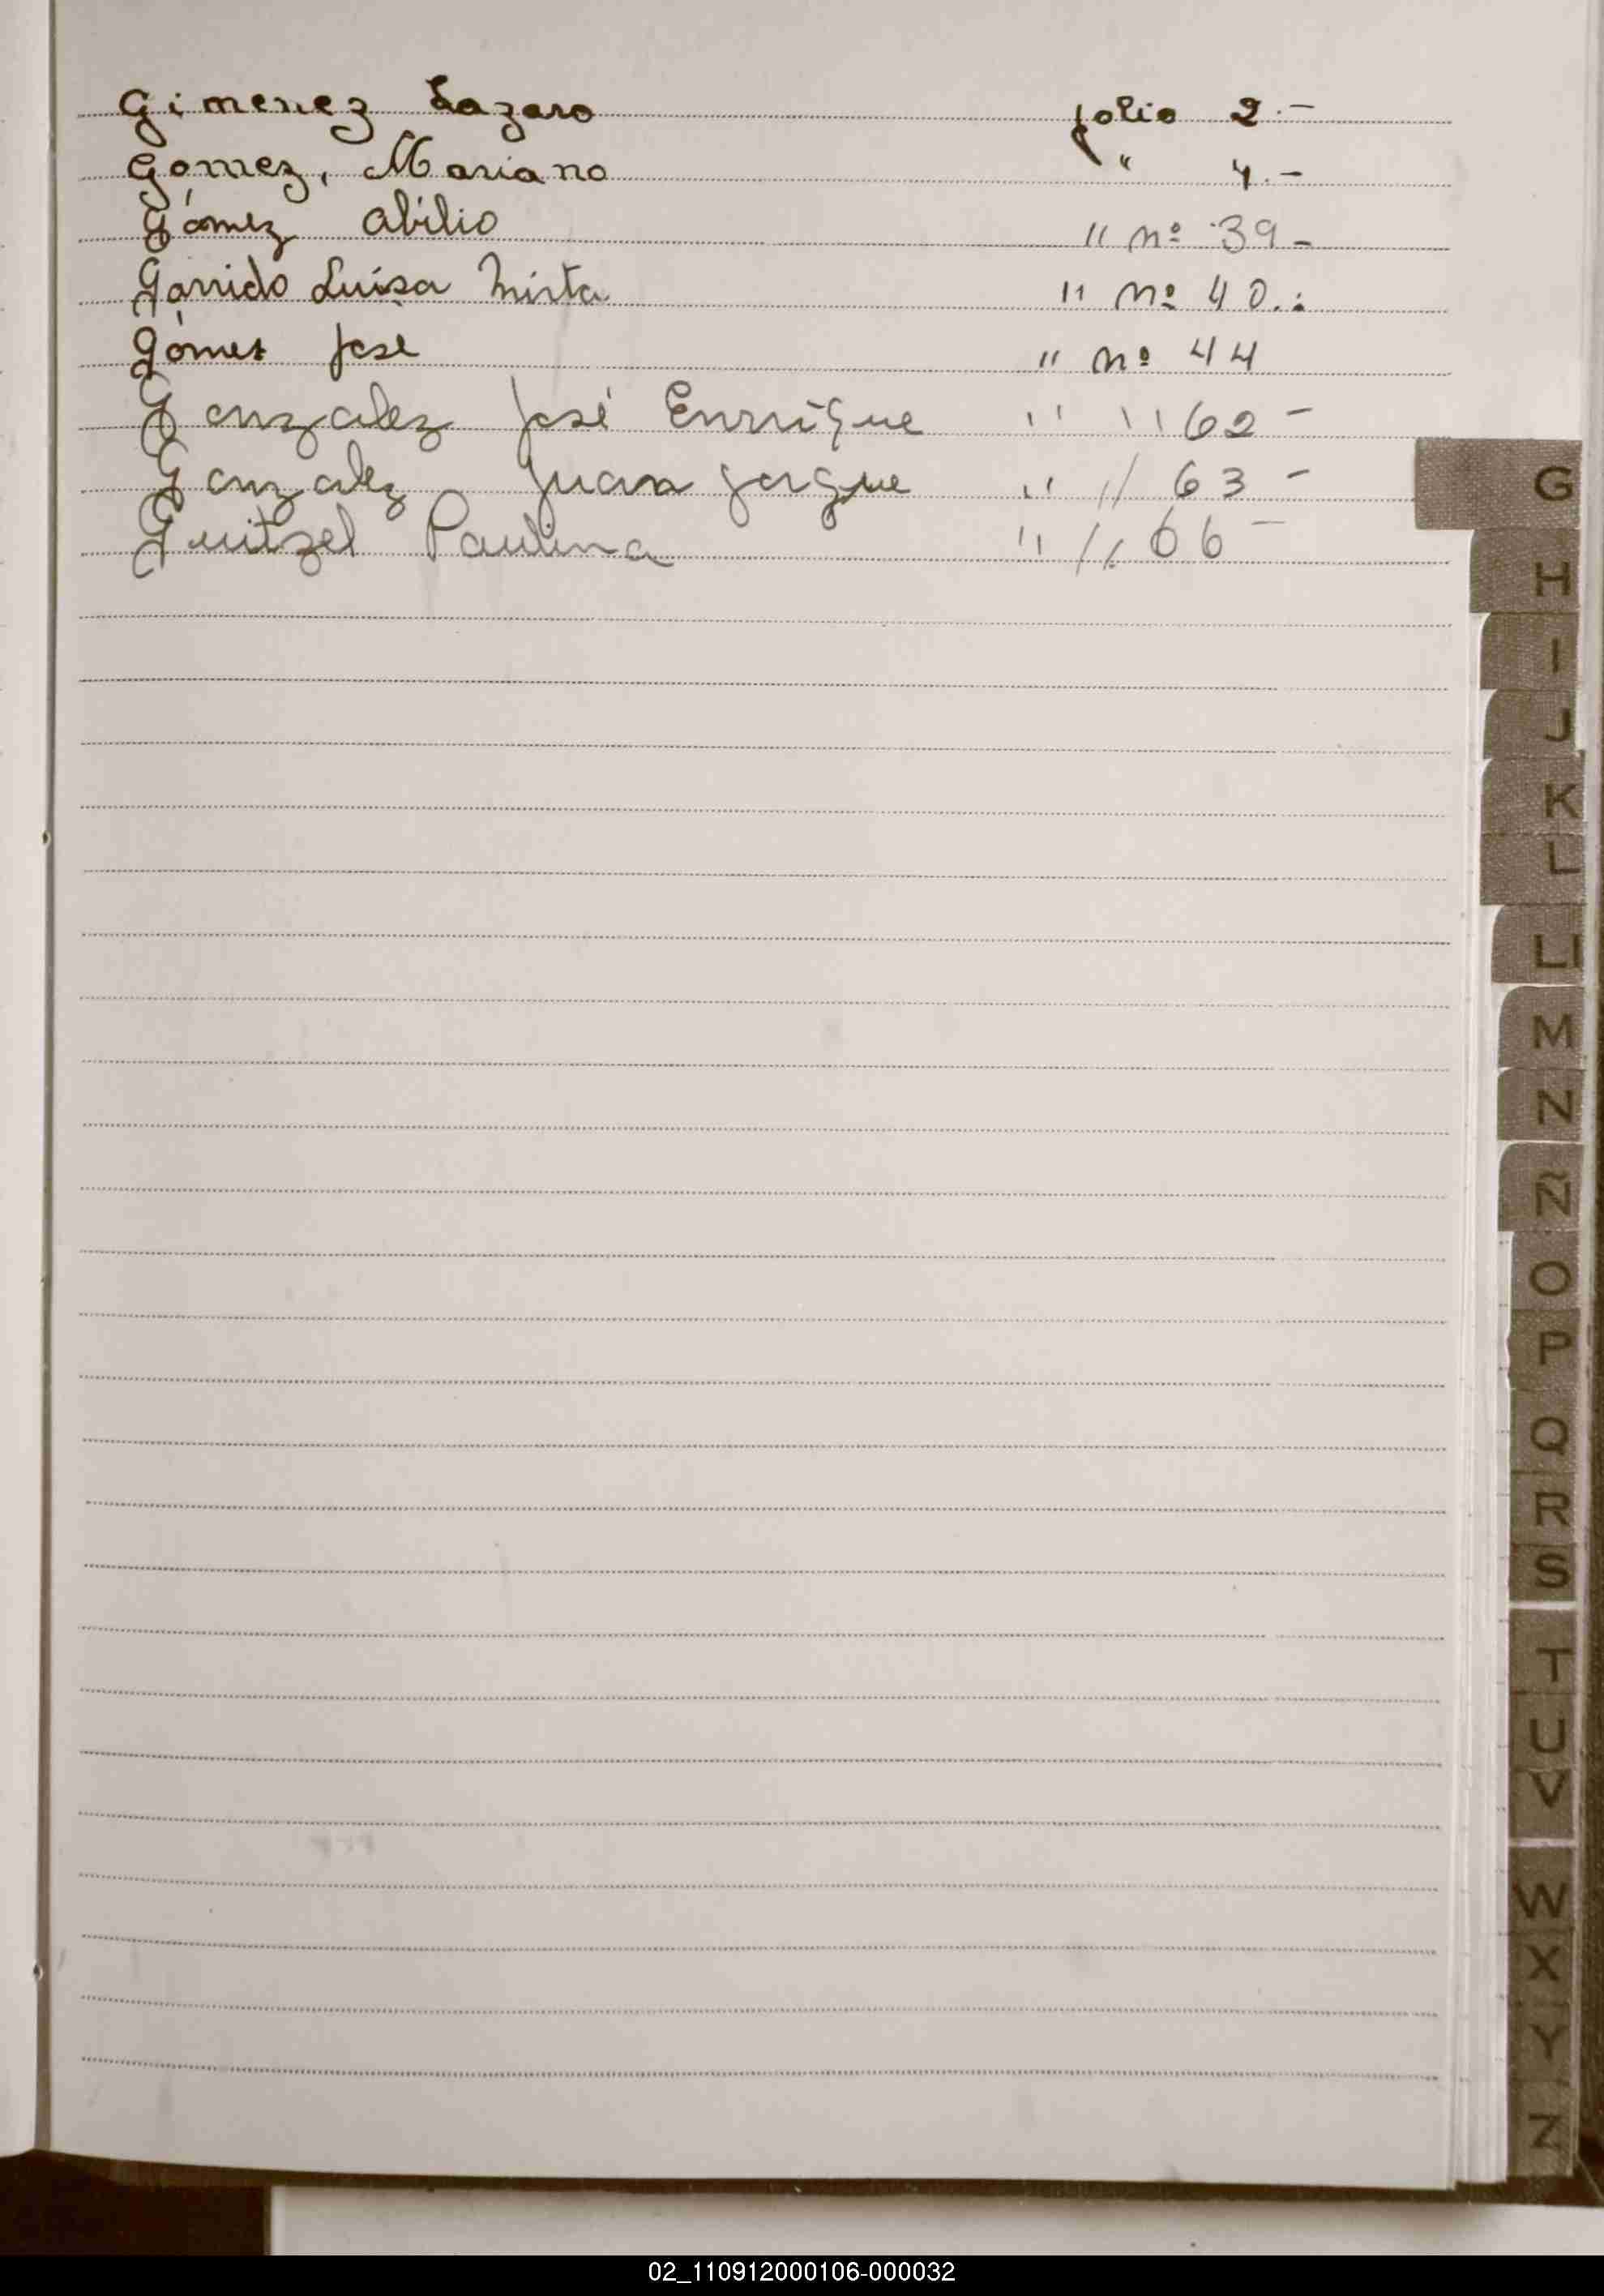 Gimenez Lazaro folio 2.-
Gomez, Mariano " 4.-
Gómez Abilio " nº 39-
Garrido Luisa Mirta " nº 40.-
Gómez José " nº 44
Gonzalez José Enrrique " " 62-
Gonzalez Juan Jorgue " // 63-
Guitzel Paulina " //. 66-
G
H
I
J
K
L
Ll
M
N
Ñ
O
P
Q
R
S
T
U
V
W
X
Y
Z
02_110912000106-000032